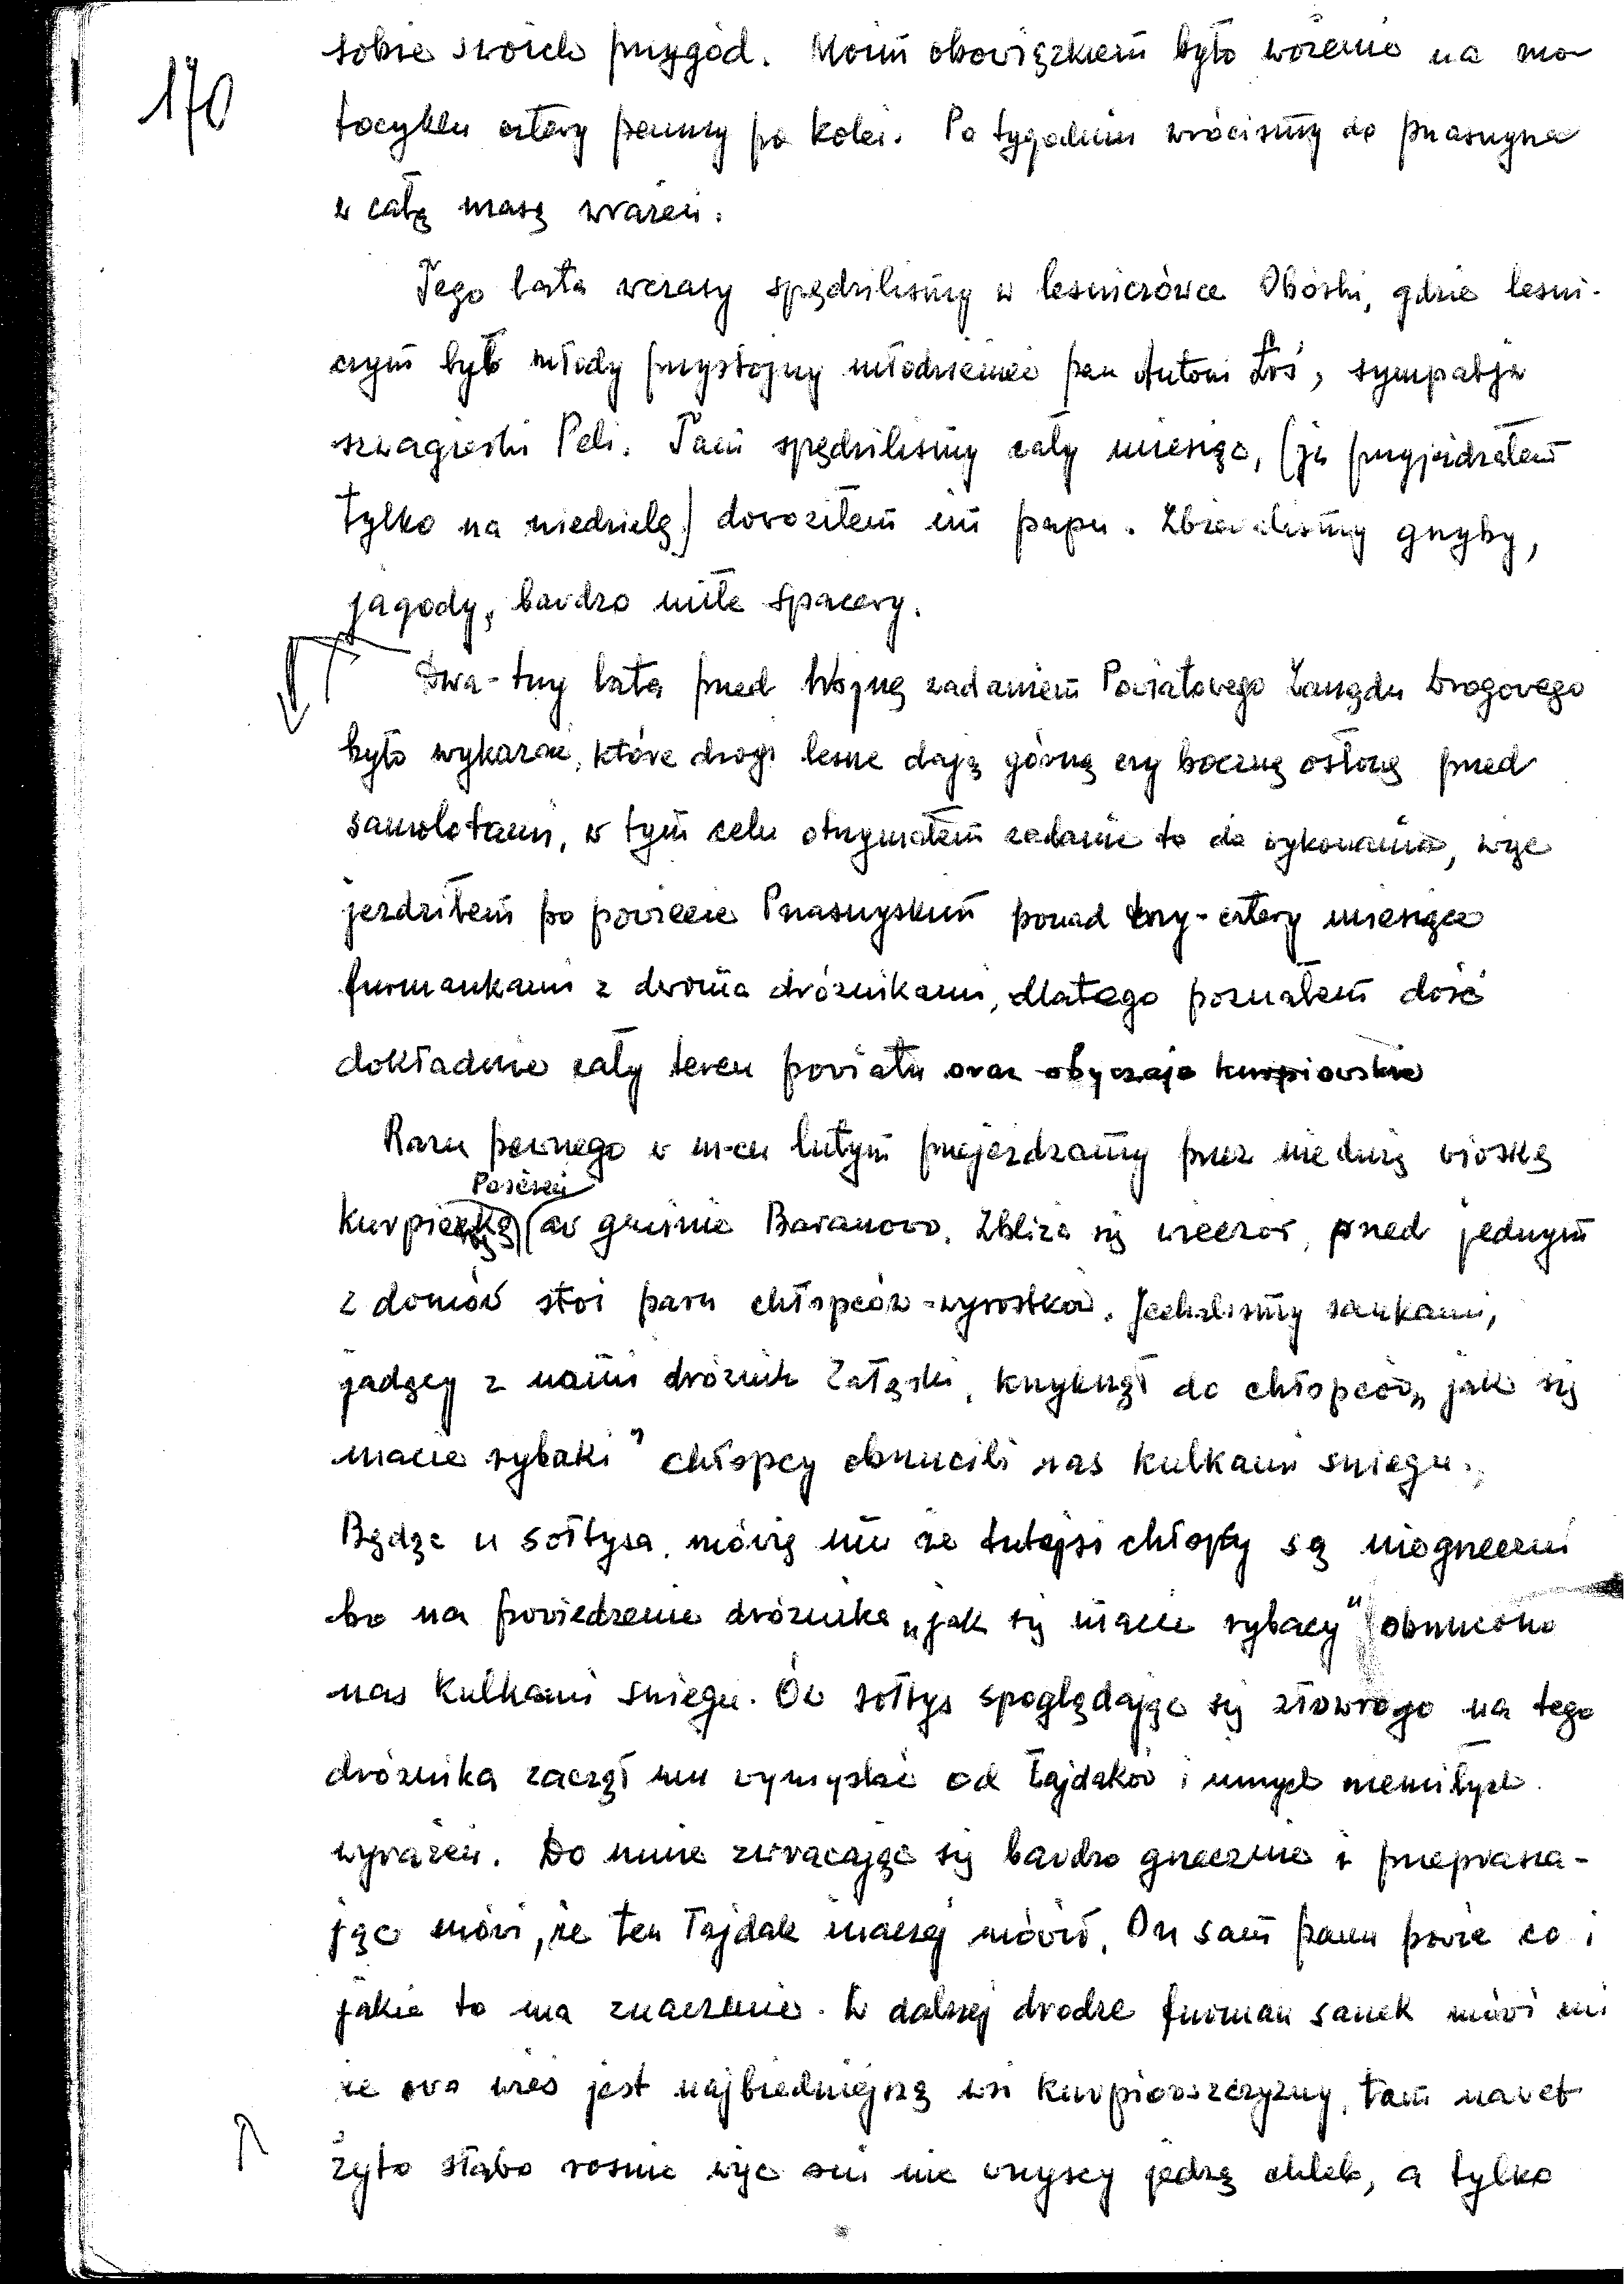 170
sobie swoich przygód. Moim obowiązkiem było wożenie na mo
tocyklu cztery panny po kolei. Po tygodniu wrócismy do Prasnysza
z całą masą wrażeń.
Tego lata wczasy spędzilismy w lesniczówce Obórki, gdzie lesni-
czym był młody przystojny młodzieniec pan Antoni Łoś, sympatja
szwagierki Peli. Tam spędzilismy cały miesiąc, (ja przyjeżdzałem
tylko na niedzielę) dowoziłem im papu. Zbieralismy grzyby,
jagody, bardzo miłe spacery.
Dwa-trzy lata przed Wojną zadaniem Powiatowego Zarządu Drogowego
było wykazać, które drogi lesne dają górną czy boczną osłonę przed
samolotami, w tym celu otrzymałem zadanie to do wykonania, więc
jezdziłem po powiecie Prasnyskim ponad trzy-cztery miesiące
furmankami z dwoma dróżnikami, dlatego poznałem dość
dokładnie cały teren powiatu oraz obyczaje kurpiowskie
Razu pewnego w m-cu lutym przejezdzamy przez nie dużą wioskę
kurpiowską w gminie Baranowo. Zbliża się wieczór, przed jednym
z domów stoi paru chłopców-wyrostków. Jechalismy sankami,
jadący z nami dróżnik Załęski, krzyknął do chłopców „jak się
macie rybaki" chłopcy obrzucili nas kulkami sniegu.
Będąc u sołtysa, mówię mu że tutejsi chłopcy są niegrzeczni
bo na powiedzenie dróżnika „jak się macie rybacy" obrzucono
nas kulkami sniegu. Ów sołtys spoglądając się złowrogo na tego
dróżnika zaczął mu wymyślać od łajdaków i innych niemiłych
wyrażeń. Do mnie zwracając się bardzo grzecznie i przeprasza-
jąc mówi, że ten łajdak inaczej mówił. On sam panu powie co i
jakie to ma znaczenie. W dalszej drodze furman sanek mówi mi
że owa wieś jest najbiedniejszą wsi Kurpiowszczyzny, tam nawet
żyto słabo rosnie więc oni nie wszyscy jedzą chleb, a tylko